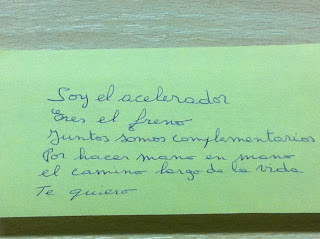 Soy el acelerador
Eres el freno
Juntos somos complementarios
Por hacer mano en mano
el camino largo de la vida
Te quiero